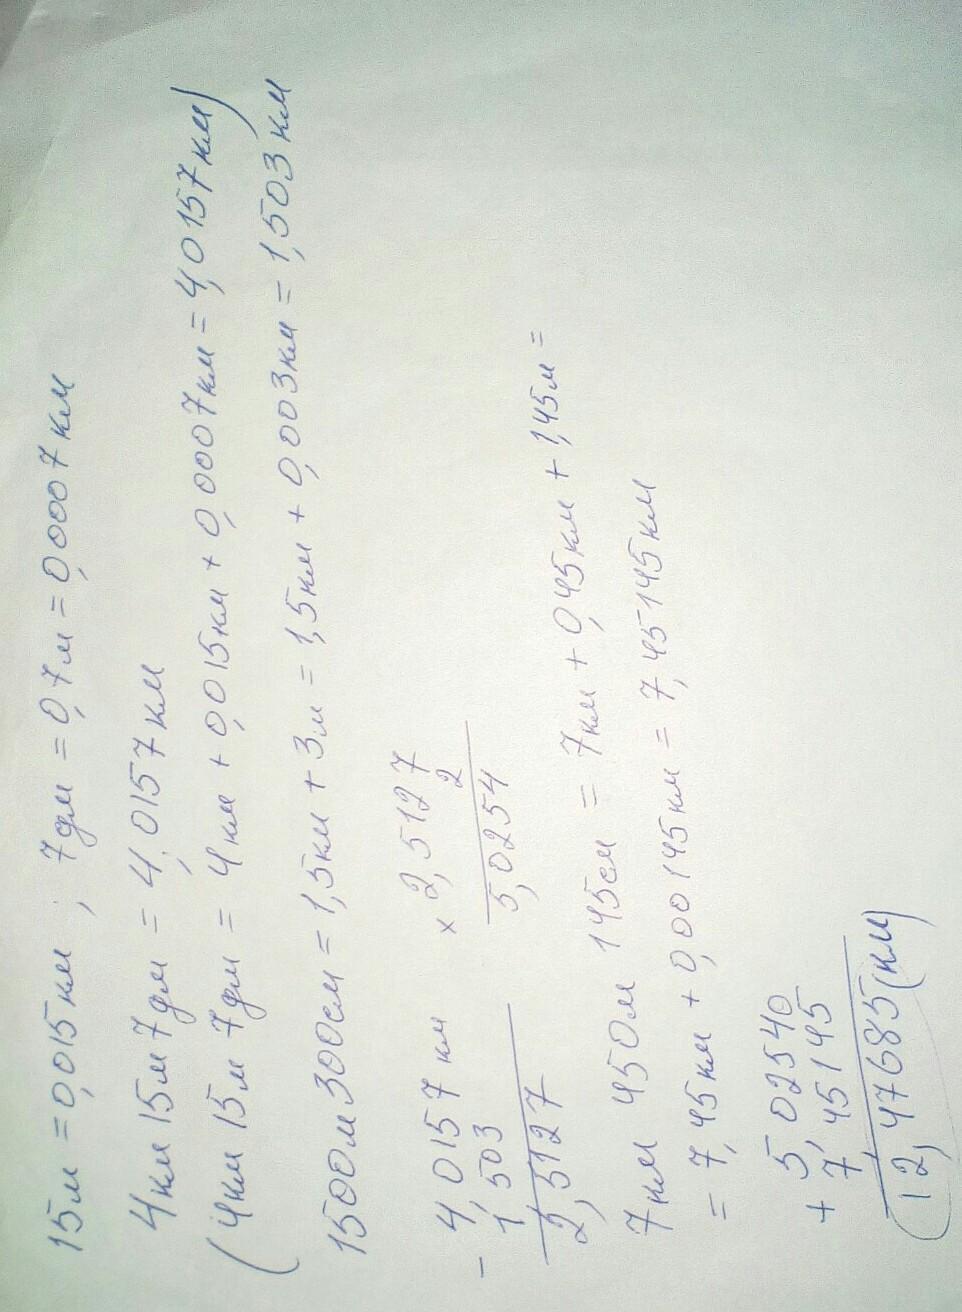 15м = 0,015км ; 7дм = 0,7м = 0,0007км
4км 15м 7дм = 4,0157км
(4км 15м 7дм = 4км + 0,015км + 0,0007км = 4,0157км)
1500м 300см = 1,5км + 3м = 1,5км + 0,003км = 1,503км
- 4,0157 км × 2,5127
1,503 2
2,5127 5,0254
7км 450м 145см = 7км + 0,45км + 1,45м =
= 7,45км + 0,00145км = 7,45145км
+ 5,02540
7,45145
12,47685(км)